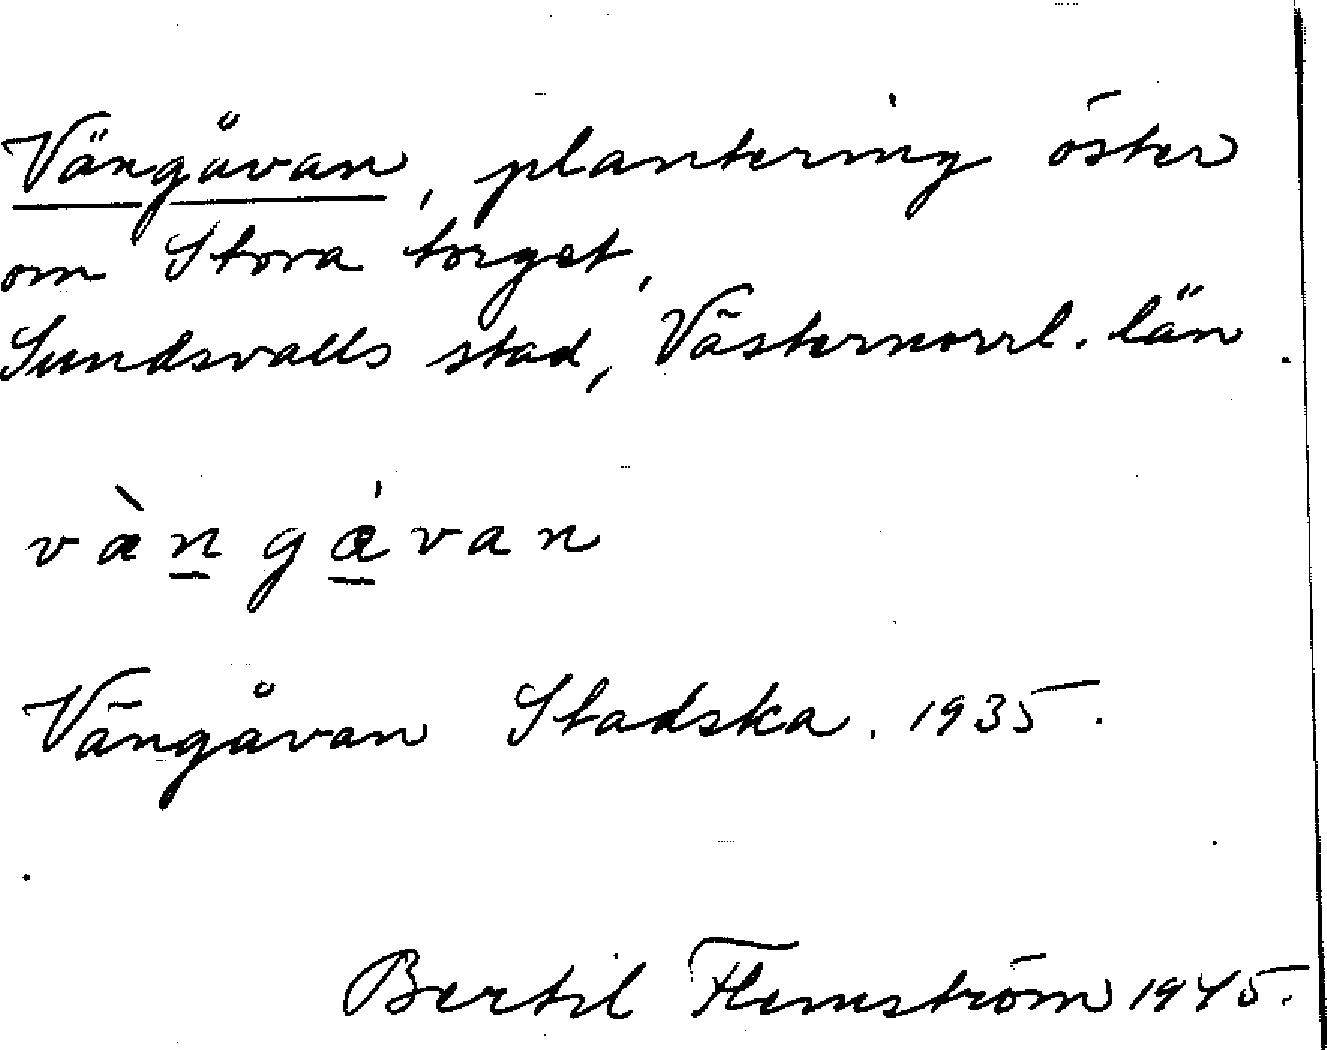 Vängåvan, plantering öster
om Stora torget,
Sundsvalls stad, Västernorrl. län.
væ̀n̲gǻ̲van
Vängåvan Stadska. 1935.
Bertil Flemström 1945.